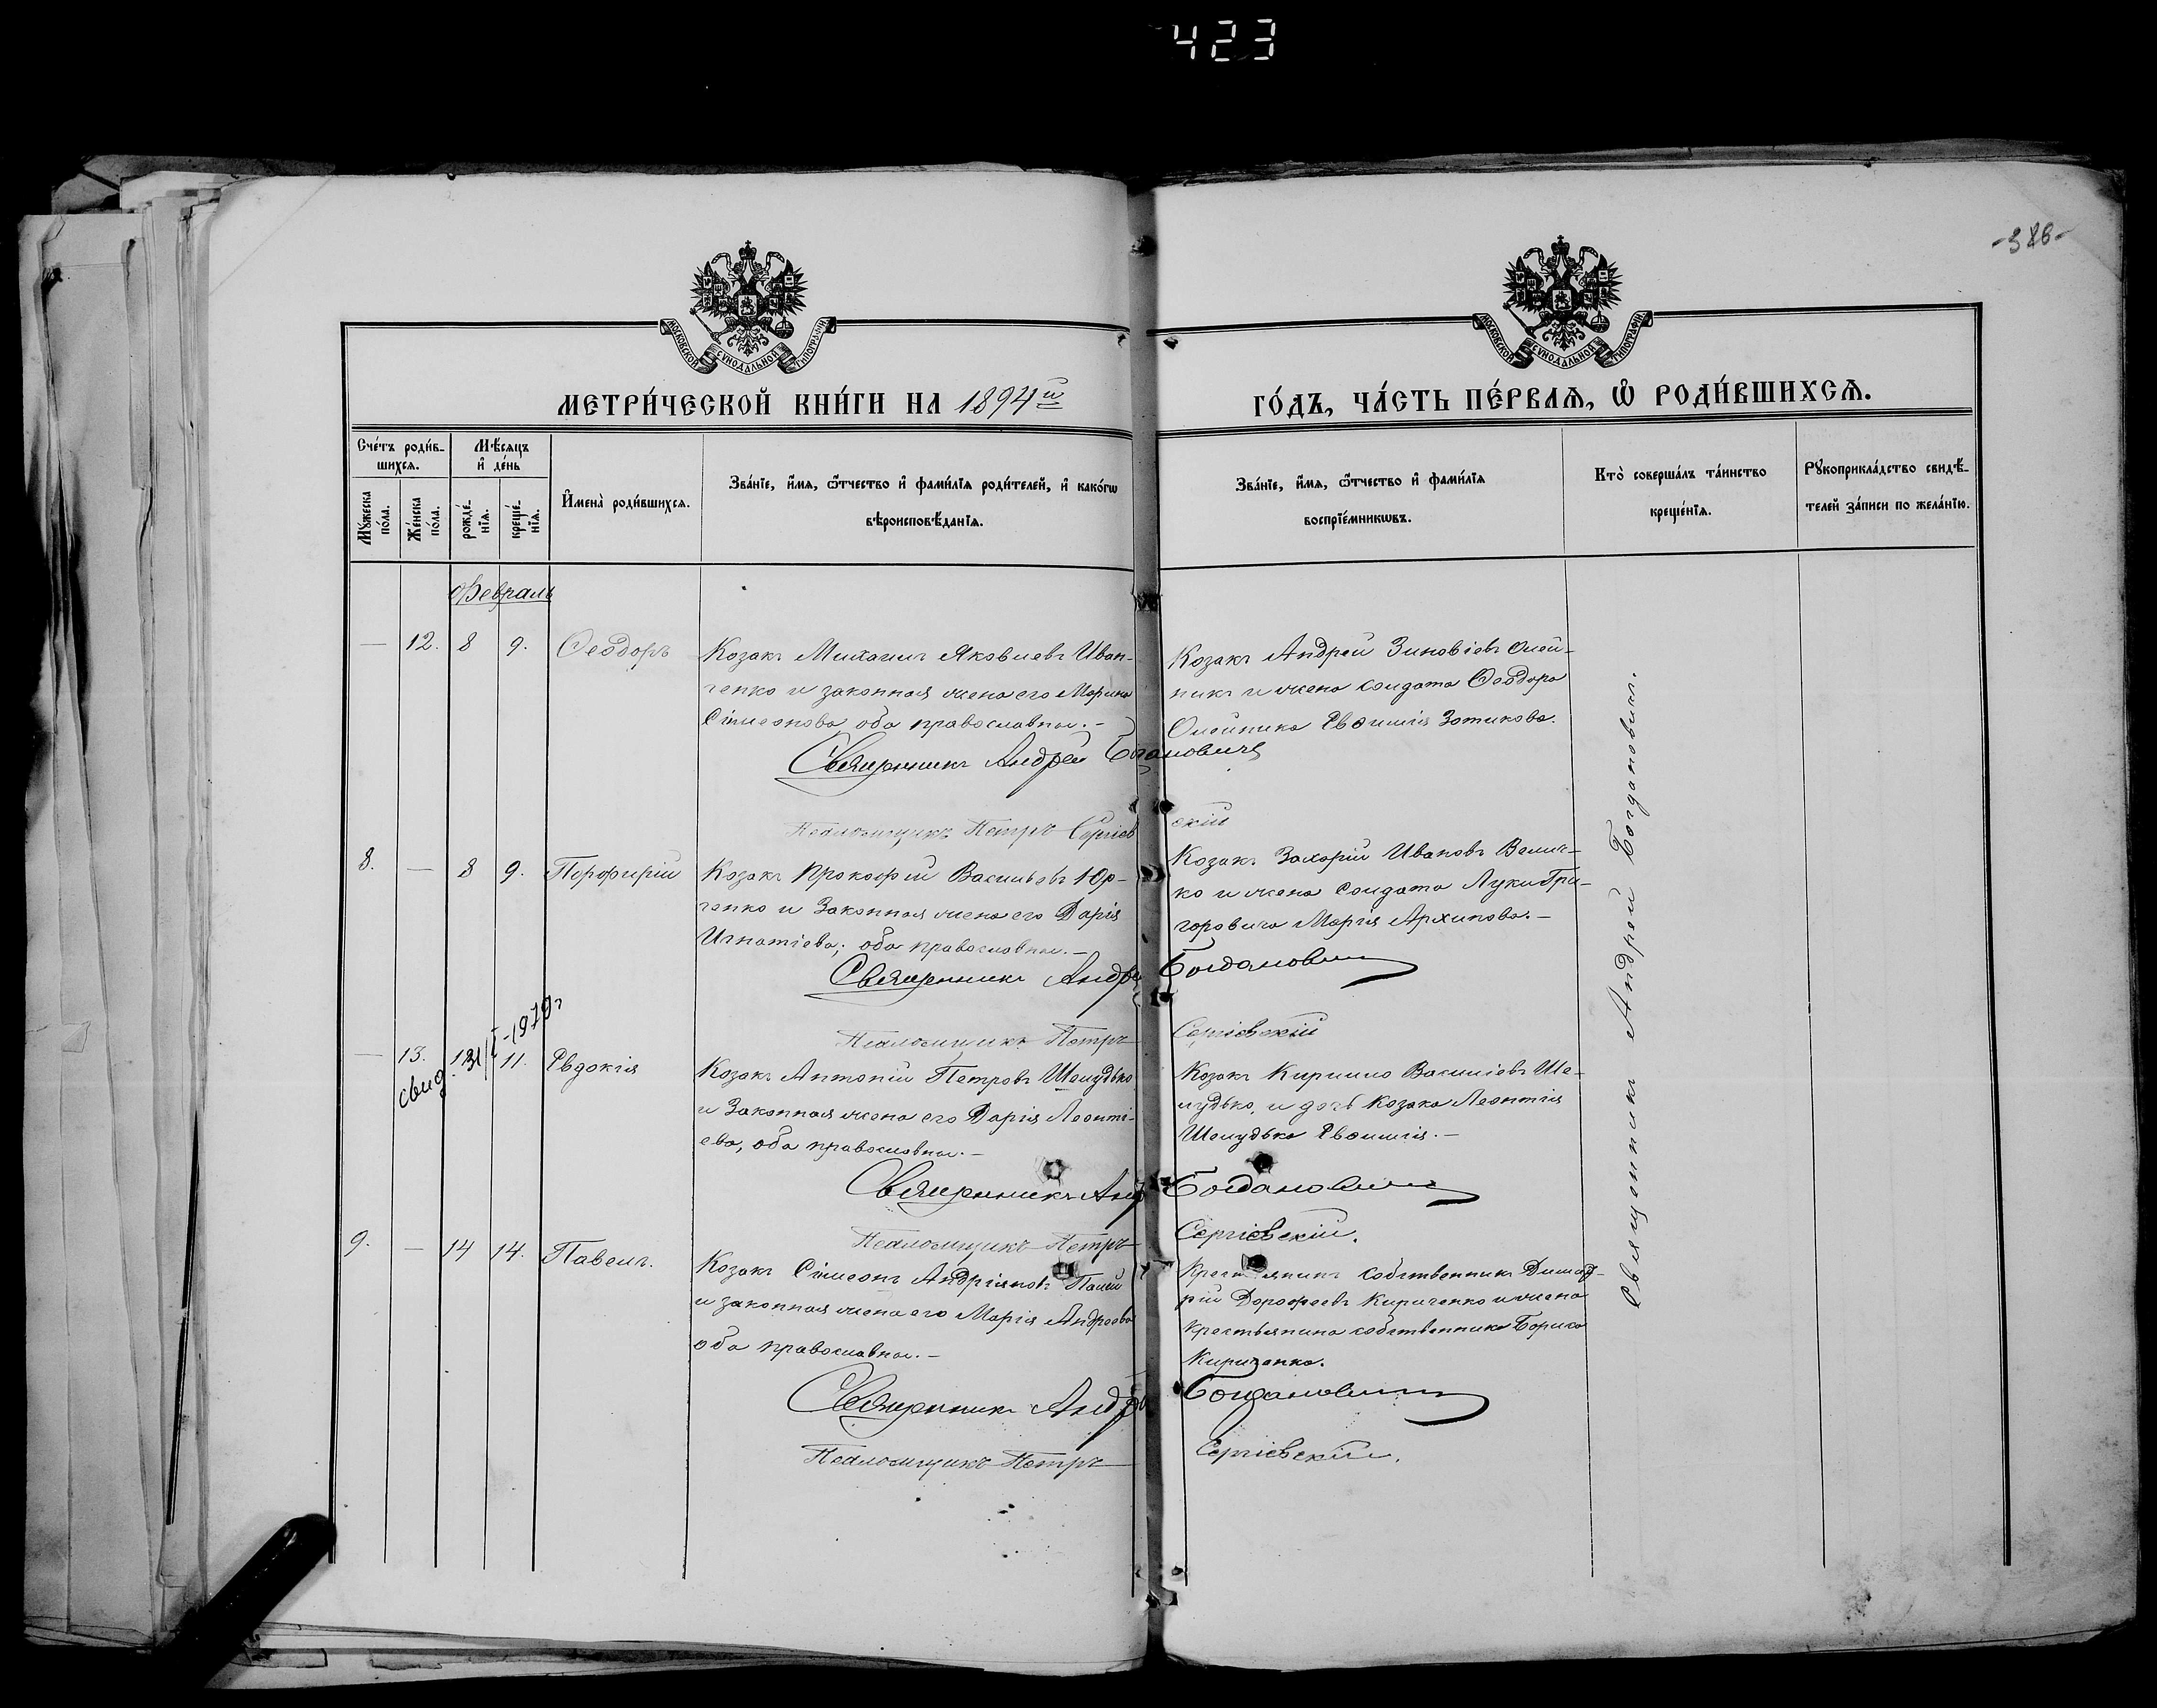 423
-386-
МОСКОВСКОЙ СѴНОДАЛЬНОЙ ТИПОГРАФІИ
МОСКОВСКОЙ СѴНОДАЛЬНОЙ ТИПОГРАФІИ
МЕТРИ́ЧЕСКОЙ КНИ́ГИ НА 1894 й
ГО́ДЪ, ЧА́СТЬ ПЕ́РВАѦ, Ѡ РОДИ́ВШИХСѦ.
Сче́тъ роди́в-
шихсѧ.
Мꙋ́жеска по́ла.
Же́нска по́ла.
Мѣ́сѧцъ
и҆ де́нь
рожде́-
нїѧ.
креще́-
нїѧ.
И҆мена̀ роди́вшихсѧ.
Зва́нїе, и҆́мѧ, ѻ҆́тчество и҆ фами́лїѧ роди́телей, и҆ како́гѡ
вѣроисповѣ́данїѧ.
Зва́нїе, и҆́мѧ, ѻ҆́тчество и҆ фами́лїѧ
воспрїе́мникѡвъ.
Кто̀ соверша́лъ та́инство
креще́нїѧ.
Рꙋкоприкла́дство свидѣ́-
телей за́писи по жела́нїю.
Февраль
— 12. 8 9. Ѳеодоръ
Козакъ Михаилъ Яковлевъ Иван-
ченко и законная жена его Марина
Сімеонова оба православные. -
Козакъ Андрей Зиновіевъ Олей-
никъ и жена солдата Ѳеодора
Олейника Евѳимія Зотикова.
Священникъ Андрей Богдановичъ
Псаломщикъ Петръ Сергіевскій
8. — 8 9. Порфирій
Козакъ Прокофій Васильевъ Юр-
ченко и Законная жена его Дарія
Игнатіева; оба православные. —
Козакъ Захарій Ивановъ Велич-
ко и жена Солдата Луки Гри-
горовича Марія Архипова. —
Священникъ Андрей Богдановичъ
Псаломщикъ Петръ Сергіевскій
— 13. 11. Евдокія
свид. 31/I-1979г
Козакъ Антоній Петровъ Шелудько
и Законная жена его Дарія Леонті-
ева, оба православные. —
Козакъ Кирилло Василіевъ Ше-
лудько, и дочь Козака Леонтія
Шелудька Евѳимія. —
Священникъ Андрей Богдановичъ
Псаломщикъ Петръ Сергіевскій.
9. — 14 14. Павелъ.
Козакъ Сімеонъ Андріяновъ Палій
и законная жена его Марія Андреева
оба православные. —
Крестьянинъ собственникъ Димит-
рій Дорофеевъ Кириченко и жена
крестьянина собственника Бориса
Кириченка.
Священникъ Андрей Богдановичъ
Псаломщикъ Петръ Сергіевскій.
Священникъ Андрей Богдановичъ.